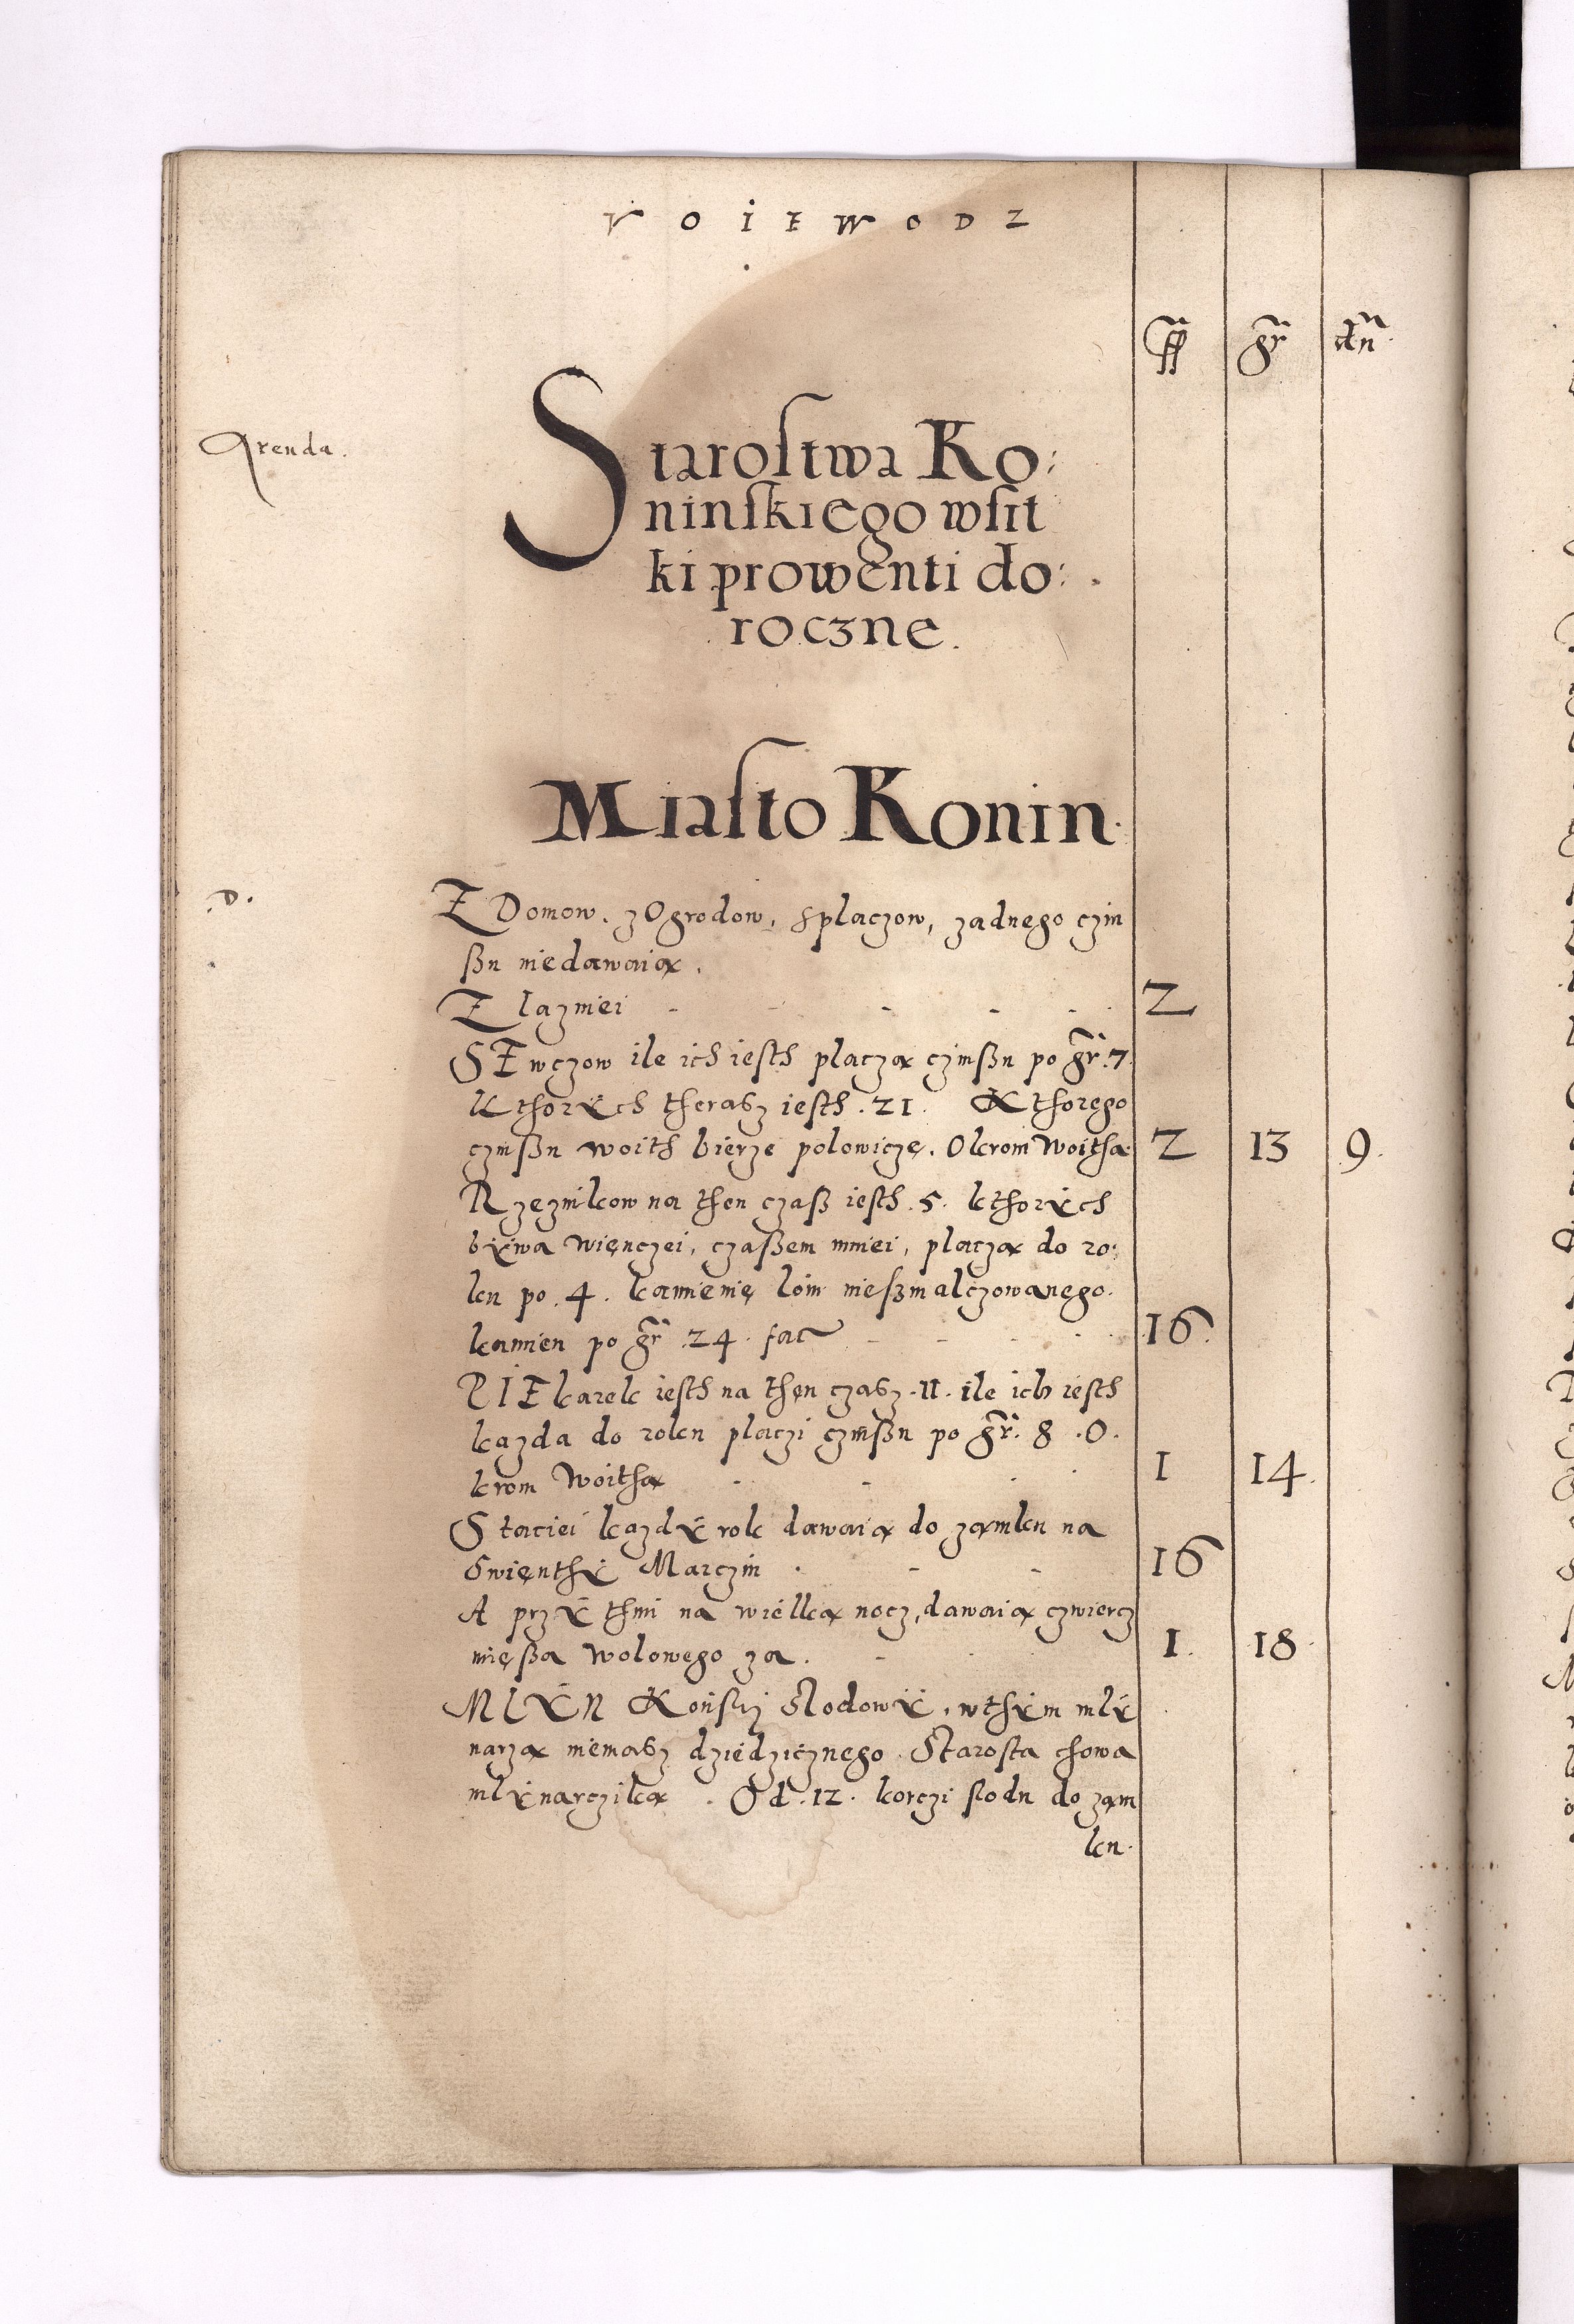 VOIEWODZ
ff gr dn.
Arenda.
Starostwa Ko:
ninskiego wsit
ki prowenti do:
roczne.
Miasto Konin.
D.
Z Domow. z Ogrodow, s placzow, zadnego czin
ßu niedawaią.
Z lazniei - - - - - 2
SZEwczow ile ich iesth placzą czinßu po gr. 7.
Kthorÿch therasz iesth .21. Kthorego
czinßu woith bierze polowiczę. Okrom Woitha. 2 13 9.
Rzeznikow na then czaß iesth .5. kthorÿch
bÿwa wienczei, czaßem mniei, placzą do ro:
ku po .4. kamienie loiu nießmalczowanego.
kamien po gr .24. fac - - - 16.
PIEkarek iesth na then czasz .11. ile ich iesth
kazda do roku placzi czinßu po gr. 8 .O.
krom Woitha - - - - 1 14.
Staciei kazdÿ rok dawaią do zamku na
Swięnthÿ Marczin . - - 16
A przÿ thÿm na wielką nocz, dawaią czwiercz
mięßa wolowego za. - - 1. 18.
MLŸN Konski Slodowÿ, w thÿm mlÿ
narza niemasz dziedzicznego. Starosta chowa
mlÿnarczika. Od .12. korczi slodu do zam
ku.